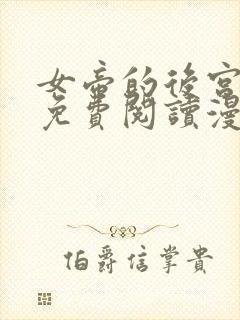 女帝的後宮
免費閱讀漫
伯爵信掌貴